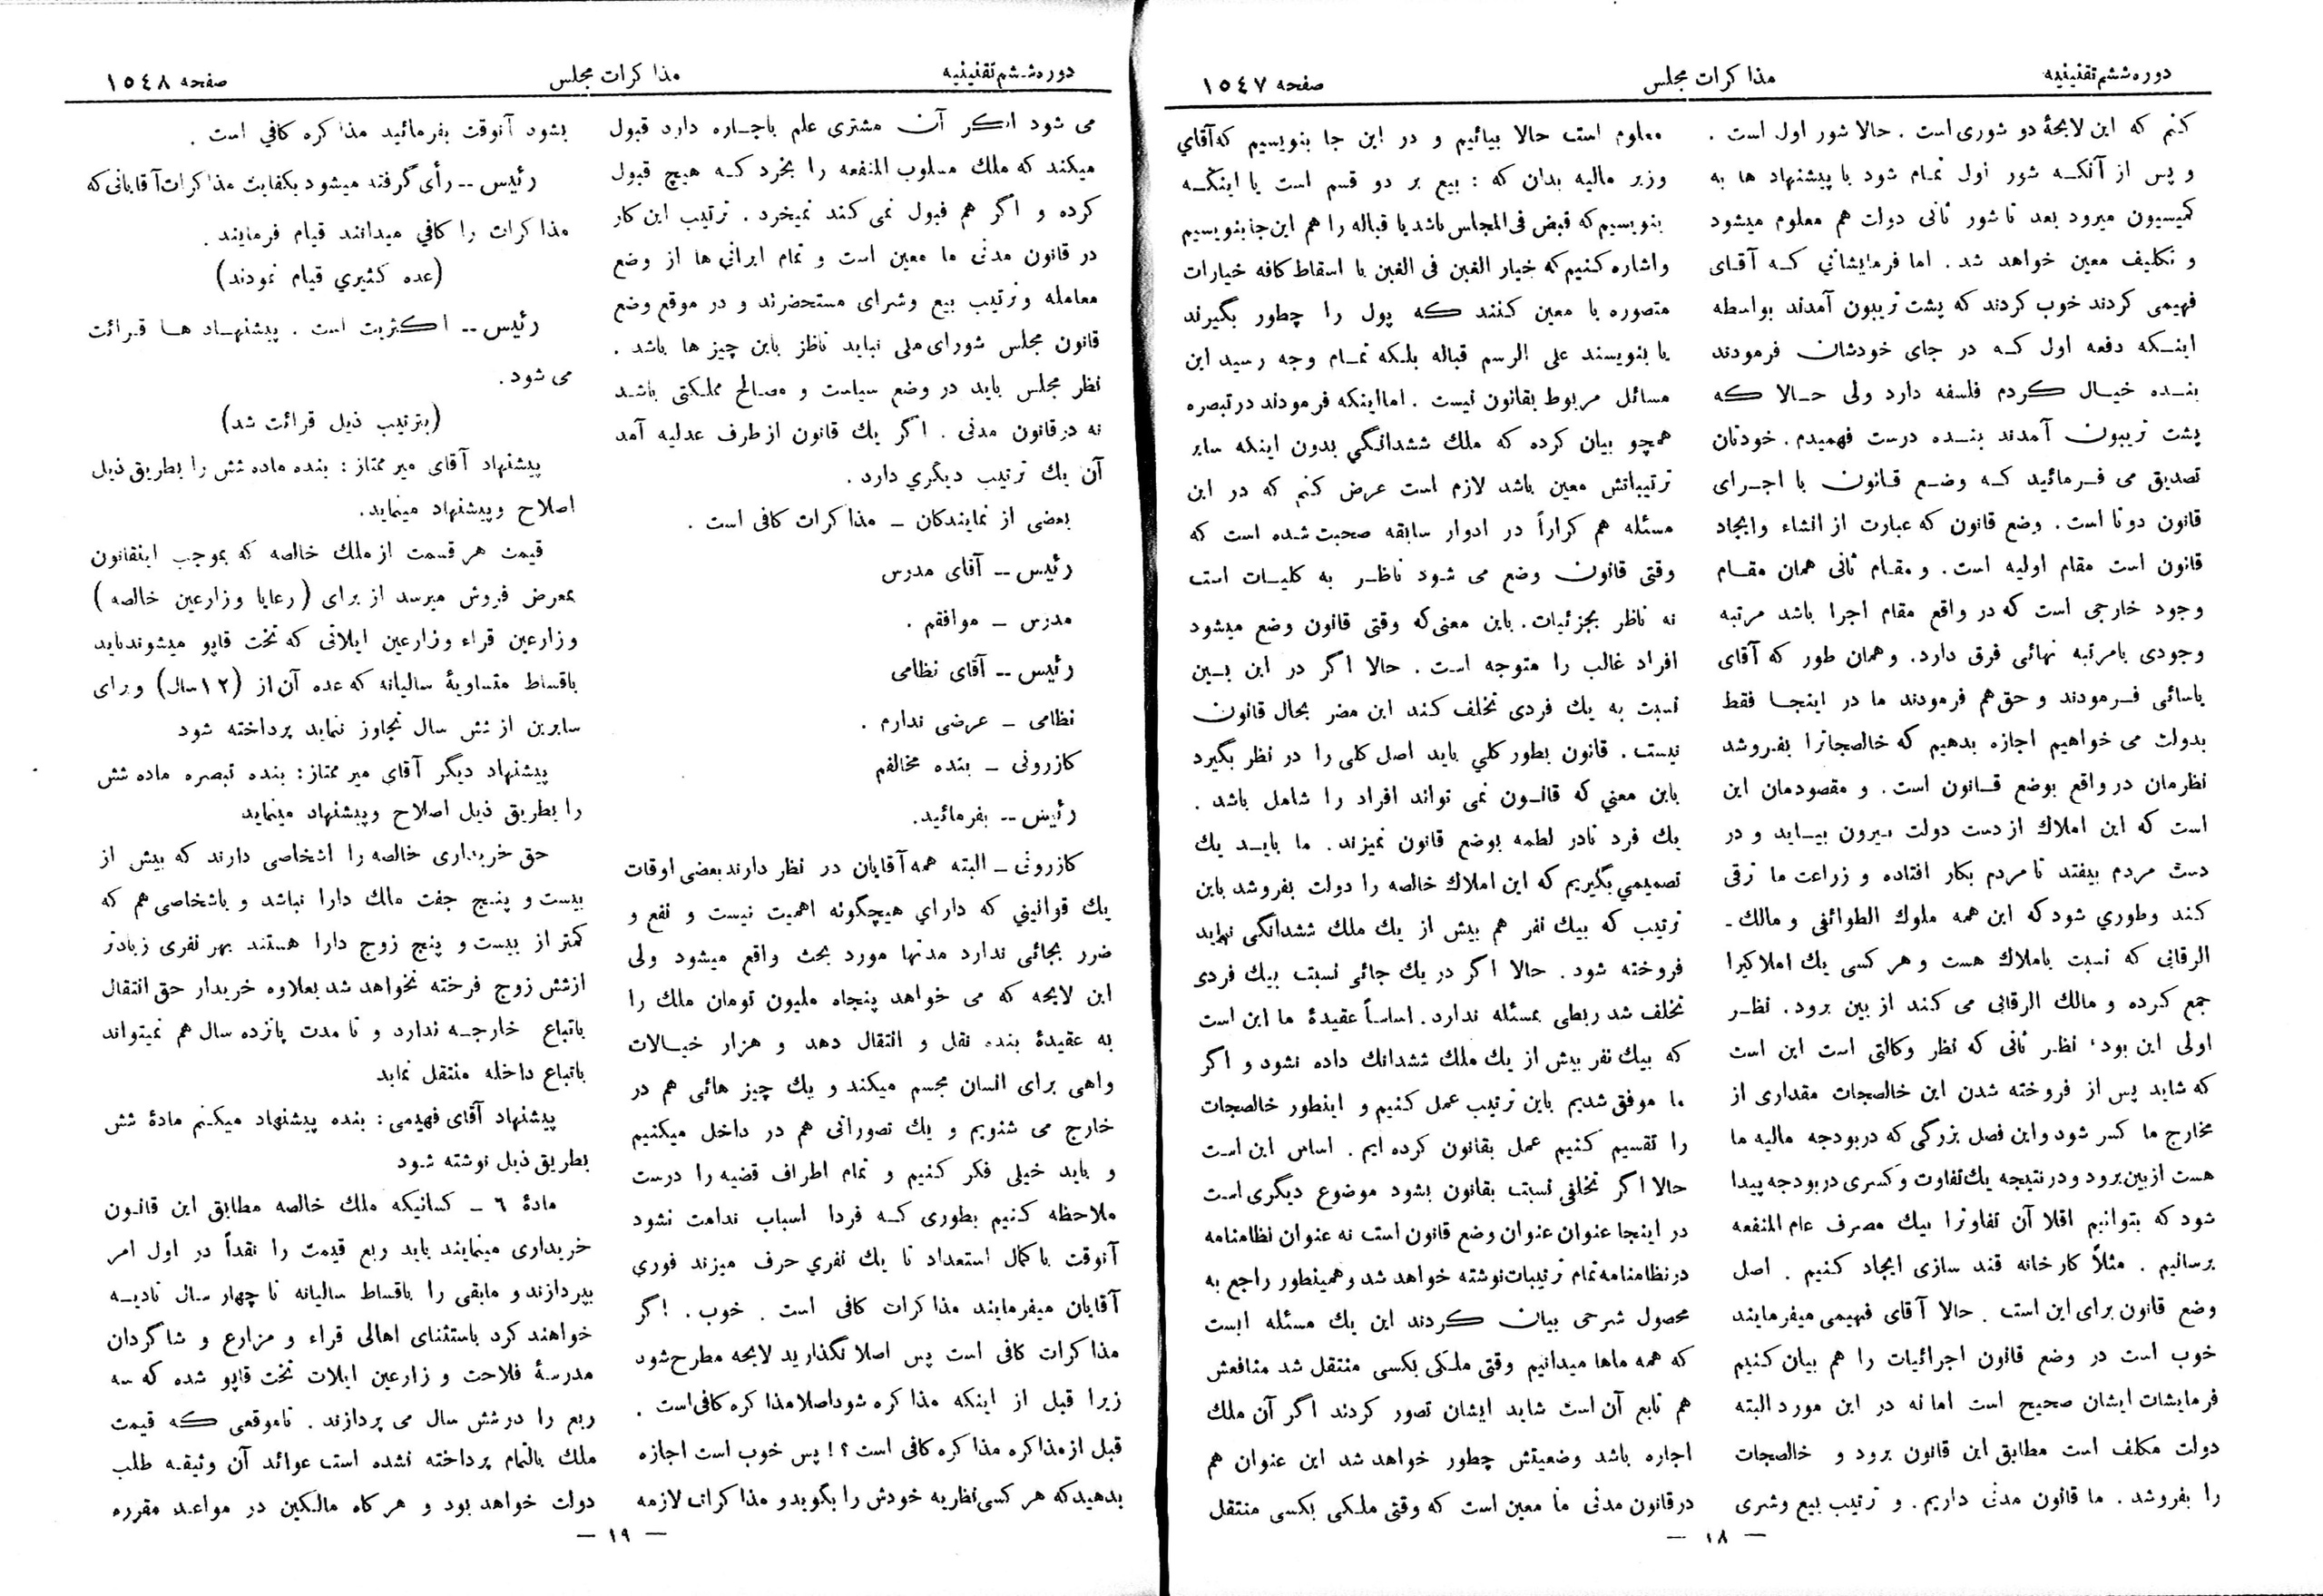 دوره ششم تقنینیه
مذاکرات مجلس
صفحه ١٥٤٧
کنم که این لایحهٔ دو شوری است . حالا شور اول است .
و پس از آنکه شور اول تمام شود با پیشنهاد ها به
کمیسیون میرود بعد تا شور ثانی دولت هم معلوم میشود
و تکلیف معین خواهد شد . اما فرمایشاتی که آقای
فهیمی کردند خوب کردند که پشت تریبون آمدند بواسطه
اینکه دفعه اول که در جای خودشان فرمودند
بنده خیال کردم فلسفه دارد ولی حالا که
پشت تریبون آمدند بنده درست فهمیدم . خودتان
تصدیق می فرمائید که وضع قانون با اجرای
قانون دوتا است . وضع قانون که عبارت از انشاء وایجاد
قانون است مقام اولیه است . و مقام ثانی همان مقام
وجود خارجی است که در واقع مقام اجرا باشد مرتبه
وجودی بامرتبه نهائی فرق دارد . وهمان طور که آقای
یاسائی فرمودند و حق هم فرمودند ما در اینجا فقط
بدولت می خواهیم اجازه بدهیم که خالصجاترا بفروشد
نظرمان در واقع بوضع قانون است . و مقصودمان این
است که این املاك از دست دولت بیرون بیاید و در
دست مردم بیفتد تا مردم بکار افتاده و زراعت ما ترقی
کند وطوری شود که این همه ملوك الطوائفی و مالك ـ
الرقابی که نسبت باملاك هست و هر کسی یك املاکیرا
جمع کرده و مالك الرقابی می کند از بین برود . نظر
اولی این بود ، نظر ثانی که نظر وکالتی است این است
که شاید پس از فروخته شدن این خالصجات مقداری از
مخارج ما کسر شود واین فصل بزرگی که دربودجه مالیه ما
هست از بین برود و در نتیجه یك تفاوت و کسری در بودجه پیدا
شود که بتوانیم اقلا آن تفاوترا بیك مصرف عام المنفعه
برسانیم . مثلاً کارخانه قند سازی ایجاد کنیم . اصل
وضع قانون برای این است . حالا آقای فهیمی میفرمایند
خوب است در وضع قانون اجرائیات را هم بیان کنیم
فرمایشات ایشان صحیح است اما نه در این مورد البته
دولت مکلف است مطابق این قانون برود و خالصجات
را بفروشد . ما قانون مدنی داریم . و ترتیب بیع وشری
معلوم است حالا بیائیم و در این جا بنویسیم که آقای
وزیر مالیه بدان که : بیع بر دو قسم است یا اینکه
بنویسیم که قبض فی المجلس باشد یا قباله را هم این جا بنویسیم
و اشاره کنیم که خیار الغبن فی الغبن با اسقاط کافه خیارات
متصوره یا معین کنند که پول را چطور بگیرند
یا بنویسند علی الرسم قباله بلکه تمام وجه رسید این
مسائل مربوط بقانون نیست . اما اینکه فرمودند در تبصره
همچو بیان کرده که ملك ششدانگی بدون اینکه سایر
ترتیباتش معین باشد لازم است عرض کنم که در این
مسئله هم کراراً در ادوار سابقه صحبت شده است که
وقتی قانون وضع می شود ناظر به کلیات است
نه ناظر بجزئیات . باین معنی که وقتی قانون وضع میشود
افراد غالب را متوجه است . حالا اگر در این بین
نسبت به یك فردی تخلف کند این مضر بحال قانون
نیست . قانون بطور کلی باید اصل کلی را در نظر بگیرد
باین معنی که قانون نمی تواند افراد را شامل باشد .
یك فرد نادر لطمه بوضع قانون نمیزند . ما باید یك
تصمیمی بگیریم که این املاك خالصه را دولت بفروشد باین
ترتیب که بیك نفر هم بیش از یك ملك ششدانگی نباید
فروخته شود . حالا اگر در یك جائی نسبت بیك فردی
تخلف شد ربطی بمسئله ندارد . اساساً عقیدهٔ ما این است
که بیك نفر بیش از یك ملك ششدانك داده نشود و اگر
ما موفق شدیم باین ترتیب عمل کنیم و اینطور خالصجات
را تقسیم کنیم عمل بقانون کرده ایم . اساس این است
حالا اگر تخلفی نسبت بقانون بشود موضوع دیگری است
در اینجا عنوان عنوان وضع قانون است نه عنوان نظامنامه
در نظامنامه تمام ترتیبات نوشته خواهد شد و همینطور راجع به
محصول شرحی بیان کردند این یك مسئله ایست
که همه ماها میدانیم وقتی ملکی بکسی منتقل شد منافعش
هم تابع آن است شاید ایشان تصور کردند اگر آن ملك
اجاره باشد وضعیتش چطور خواهد شد این عنوان هم
در قانون مدنی ما معین است که وقتی ملکی بکسی منتقل
— ١٨ —
دوره ششم تقنینیه
مذاکرات مجلس
صفحه ١٥٤٨
می شود اگر آن مشتری علم باجاره دارد قبول
میکند که ملك مسلوب المنفعه را بخرد که هیچ قبول
کرده و اگر هم قبول نمی کند نمیخرد . ترتیب این کار
در قانون مدنی ما معین است و تمام ایرانی ها از وضع
معامله وترتیب بیع وشرای مستحضرند و در موقع وضع
قانون مجلس شورای ملی نباید ناظر باین چیز ها باشد .
نظر مجلس باید در وضع سیاست و مصالح مملکتی باشد
نه در قانون مدنی . اگر یك قانون از طرف عدلیه آمد
آن یك ترتیب دیگری دارد .
بعضی از نمایندگان ـ مذاکرات کافی است .
رئیس ــ آقای مدرس
مدرس ـ موافقم .
رئیس ــ آقای نظامی
نظامی ـ عرضی ندارم .
کازرونی ـ بنده مخالفم
رئیس ــ بفرمائید .
کازرونی ـ البته همه آقایان در نظر دارند بعضی اوقات
یك قوانینی که دارای هیچگونه اهمیت نیست و نفع و
ضرر بجائی ندارد مدتها مورد بحث واقع میشود ولی
این لایحه که می خواهد پنجاه ملیون تومان ملك را
به عقیدهٔ بنده نقل و انتقال دهد و هزار خیالات
واهی برای انسان مجسم میکند و یك چیز هائی هم در
خارج می شنویم و یك تصوراتی هم در داخل میکنیم
و باید خیلی فکر کنیم و تمام اطراف قضیه را درست
ملاحظه کنیم بطوری که فردا اسباب ندامت نشود
آنوقت با کمال استعداد تا یك نفری حرف میزند فوری
آقایان میفرمایند مذاکرات کافی است . خوب . اگر
مذاکرات کافی است پس اصلا نگذارید لایحه مطرح شود
زیرا قبل از اینکه مذاکره شود اصلا مذاکره کافی است .
قبل از مذاکره مذاکره کافی است ؟! پس خوب است اجازه
بدهید که هر کسی نظریه خودش را بگوید و مذاکرات لازمه
بشود آنوقت بفرمائید مذاکره کافی است .
رئیس ــ رأی گرفته میشود بکفایت مذاکرات آقایانی که
مذاکرات را کافی میدانند قیام فرمایند .
(عده کثیری قیام نمودند)
رئیس ــ اکثریت است . پیشنهاد ها قرائت
می شود .
(بترتیب ذیل قرائت شد)
پیشنهاد آقای میر ممتاز : بنده ماده شش را بطریق ذیل
اصلاح وپیشنهاد مینماید .
قیمت هر قسمت از ملك خالصه که بموجب اینقانون
بمعرض فروش میرسد از برای (رعایا وزارعین خالصه)
و زارعین قراء وزارعین ایلاتی که تخت قاپو میشوند باید
باقساط متساویهٔ سالیانه که عده آن از (١٢ سال) وبرای
سایرین از شش سال تجاوز ننماید پرداخته شود
پیشنهاد دیگر آقای میر ممتاز : بنده تبصره ماده شش
را بطریق ذیل اصلاح وپیشنهاد مینماید
حق خریداری خالصه را اشخاصی دارند که بیش از
بیست و پنج جفت مالك دارا نباشد و باشخاصی هم که
کمتر از بیست و پنج زوج دارا هستند بهر نفری زیادتر
ازشش زوج فرخته نخواهد شد بعلاوه خریدار حق انتقال
باتباع خارجه ندارد و تا مدت پانزده سال هم نمیتواند
باتباع داخله منتقل نماید
پیشنهاد آقای فهیمی : بنده پیشنهاد میکنم مادهٔ شش
بطریق ذیل نوشته شود
مادهٔ ٦ ـ کسانیکه ملك خالصه مطابق این قانون
خریداری مینمایند باید ربع قیمت را نقداً در اول امر
بپردازند و مابقی را باقساط سالیانه تا چهار سال تادیه
خواهند کرد باستثنای اهالی قراء و مزارع و شاگردان
مدرسهٔ فلاحت و زارعین ایلات تخت قاپو شده که سه
ربع را در شش سال می پردازند . تا موقعی که قیمت
ملك بالتمام پرداخته نشده است عوائد آن وثیقه طلب
دولت خواهد بود و هرگاه مالکین در مواعد مقرره
— ١٩ —